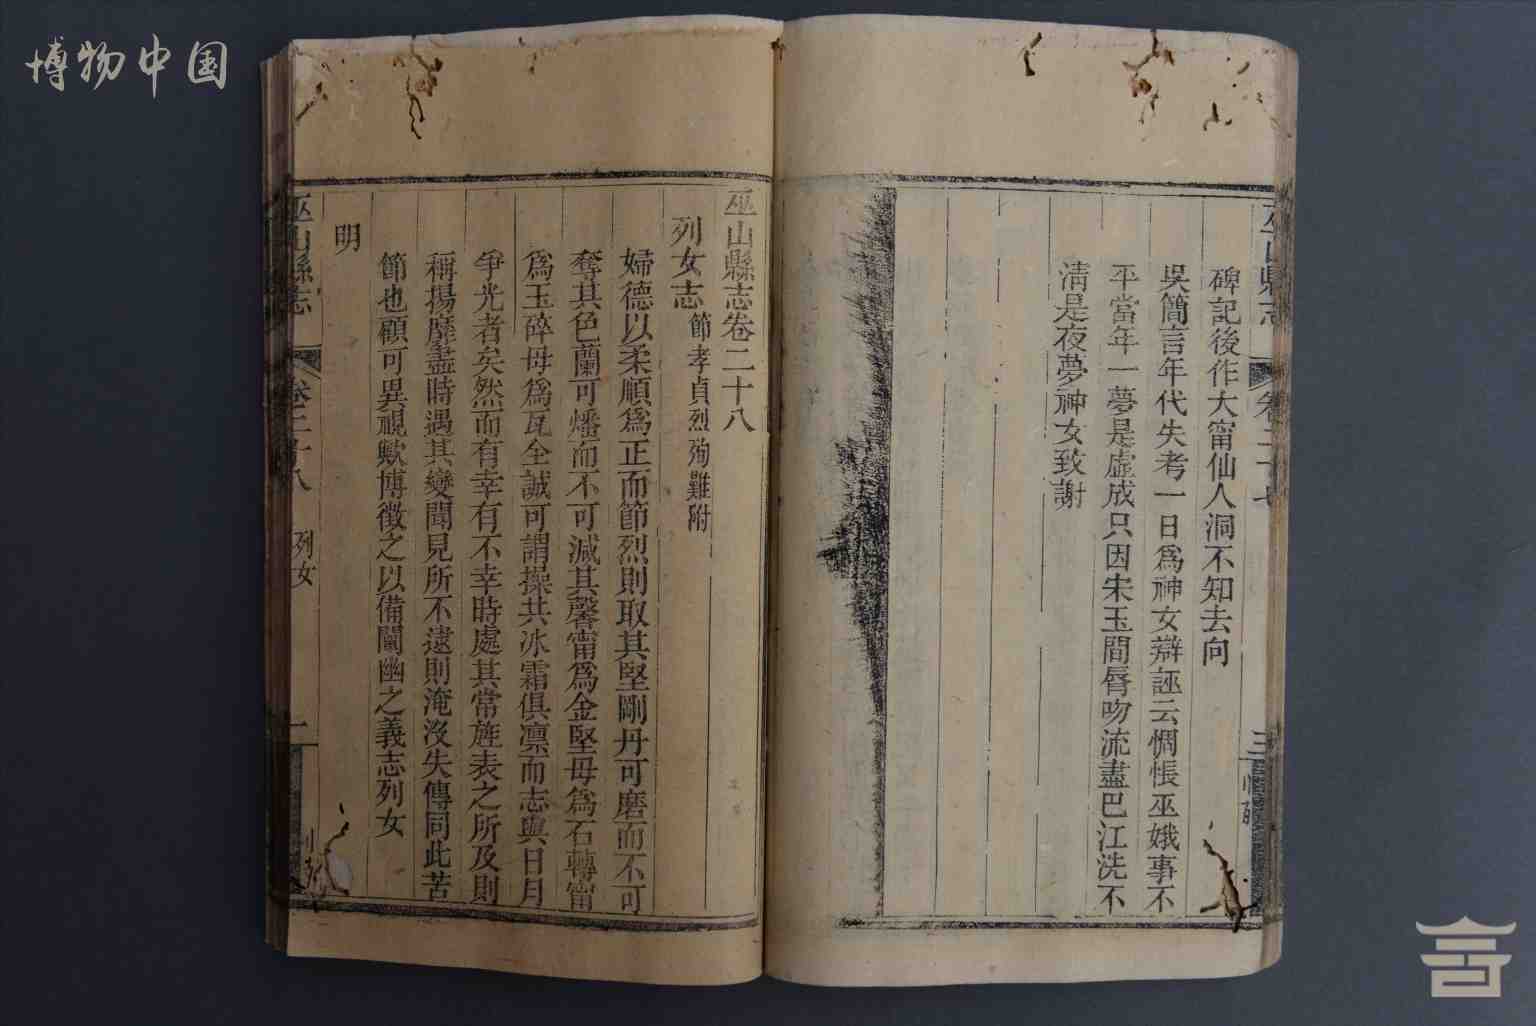 博物中国
碑記後作大甯仙人洞不知去向
吳簡言年代失考一日爲神女辯誣云惆悵巫娥事不
平當年一夢是虛成只因宋玉間脣吻流盡巴江洗不
淸是夜夢神女致謝
巫山縣志卷二十八
列女志 節孝貞烈殉難附
婦德以柔順爲正而節烈則取其堅剛丹可磨而不可
奪其色蘭可燔而不可減其馨甯爲金堅毋爲石轉甯
爲玉碎毋爲瓦全誠可謂操共冰霜俱凛而志與日月
爭光者矣然而有幸有不幸時處其常旌表之所及則
稱揚靡盡時遇其變聞見所不逮則淹沒失傳同此苦
節也顧可異視歟博徵之以備闡幽之義志列女
明
巫山縣志 卷二十八 列女 一